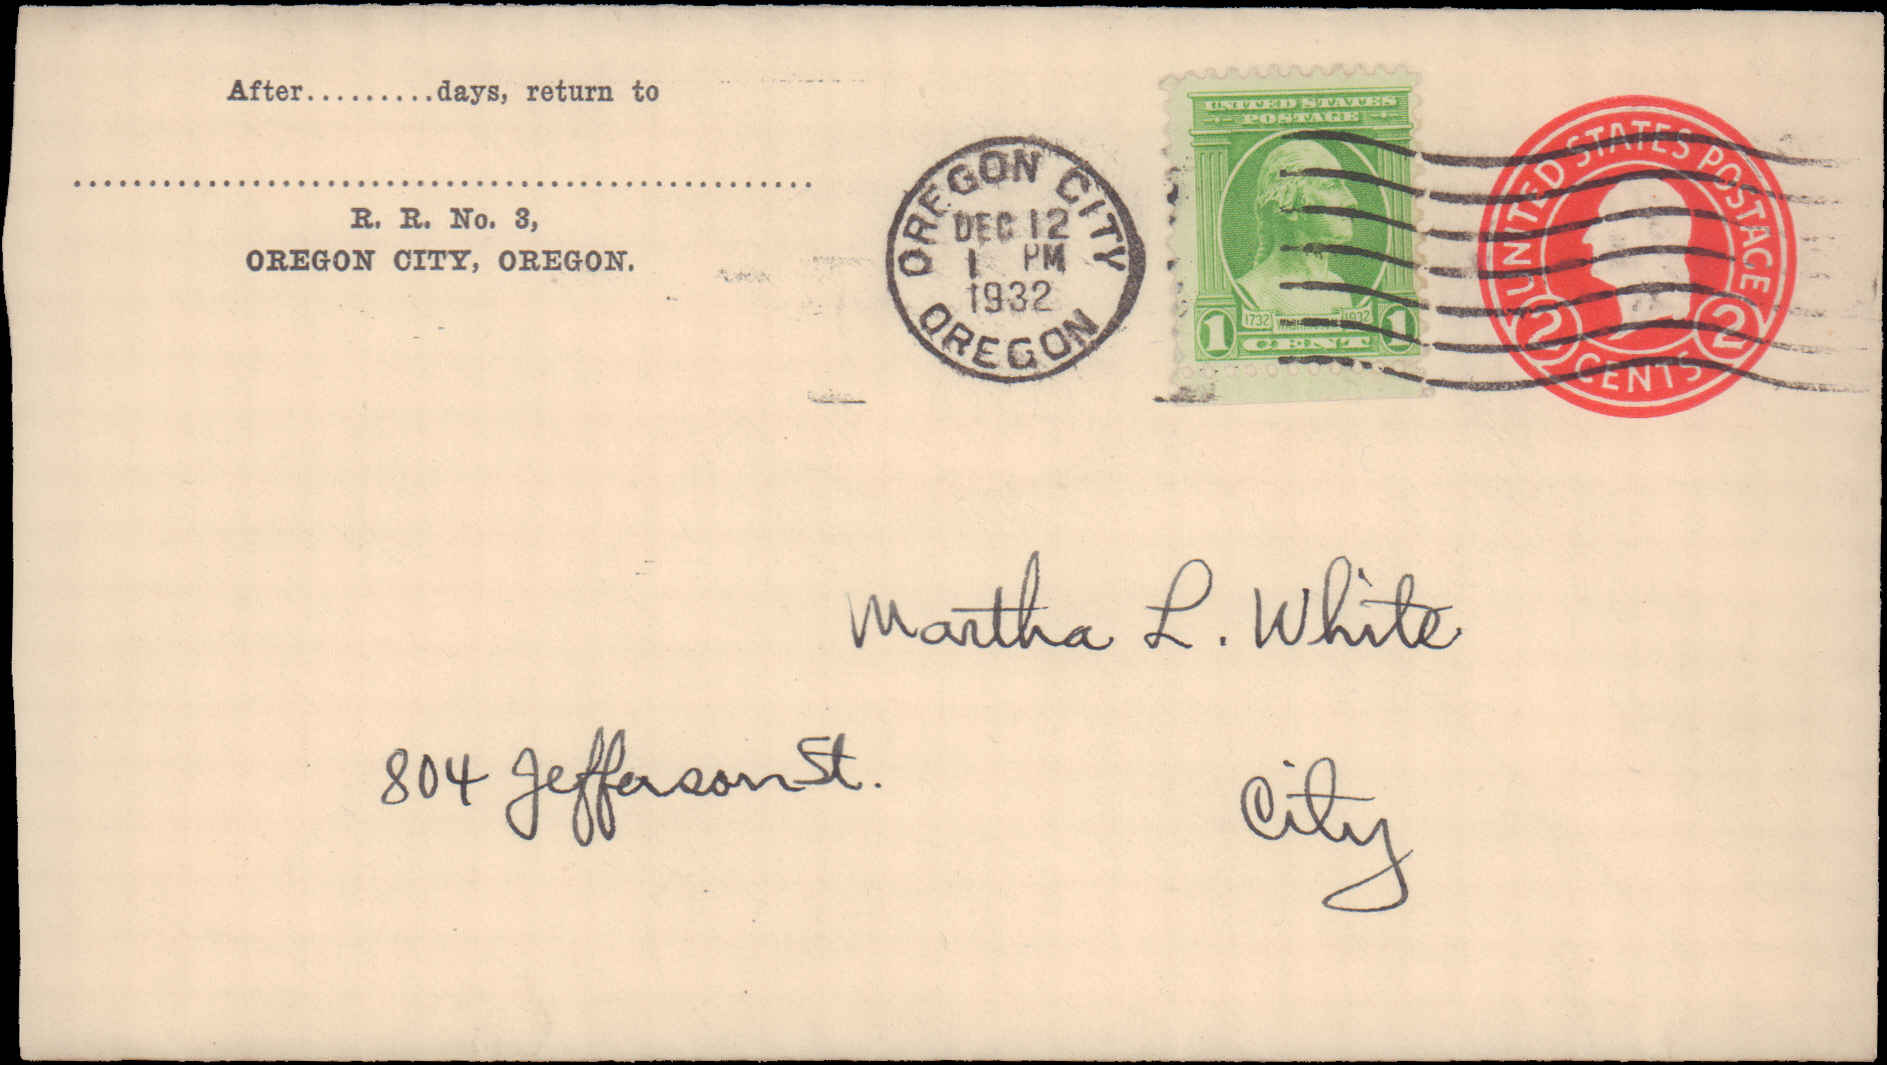 After.........days, return to
..................................................
R. R. No. 3,
OREGON CITY, OREGON.
OREGON CITY
DEC 12
1 PM
1932
OREGON
UNITED STATES
POSTAGE
1732 WASHINGTON 1932
1 CENT 1
UNITED STATES POSTAGE
2 CENTS 2
Martha L. White
804 Jefferson St.
City